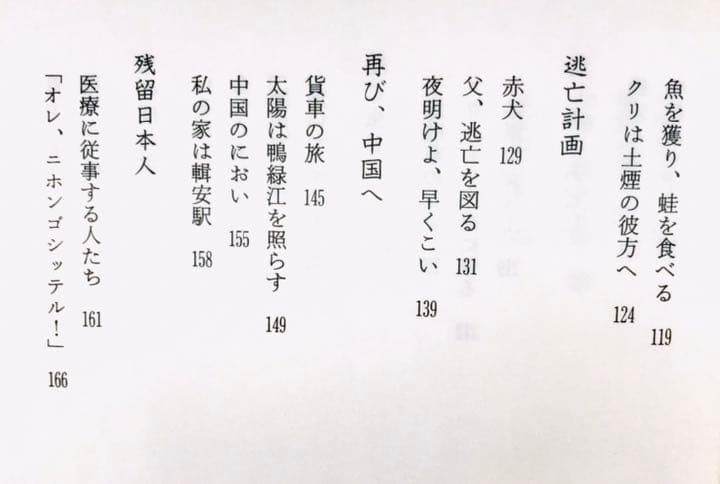 魚を獲り、蛙を食べる 119
クリは土煙の彼方へ 124
逃亡計画
赤犬 129
父、逃亡を図る 131
夜明けよ、早くこい 139
再び、中国へ
貨車の旅 145
太陽は鴨緑江を照らす 149
中国のにおい 155
私の家は輯安駅 158
残留日本人
医療に従事する人たち 161
「オレ、ニホンゴシッテル！」 166